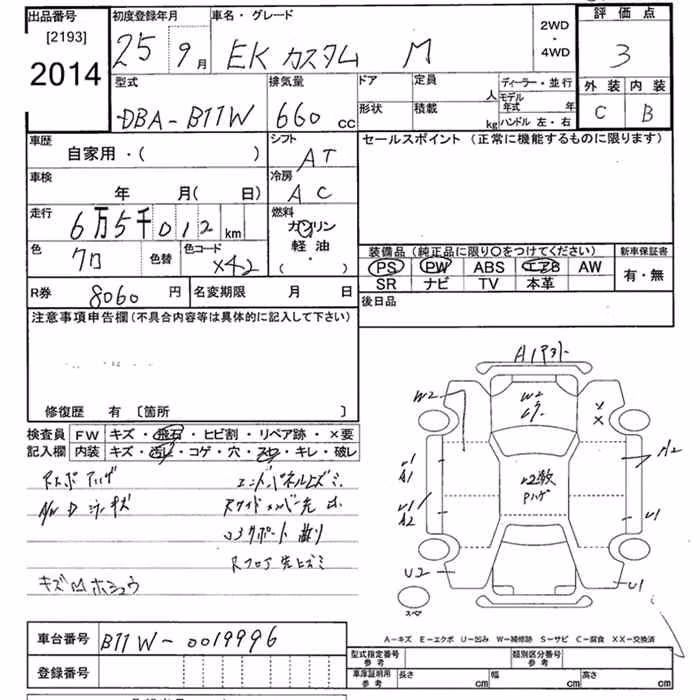 出品番号 初度登録年月 車名・グレード 2WD・4WD 評価点
[2193]
2014 25 9月 EK カスタム M 3
型式 排気量 ドア 定員 人 ディーラー・並行 外装 内装
DBA-B11W 660 cc 形状 積載 kg モデル年式 年 C B
ハンドル 左・右
車歴 シフト セールスポイント (正常に機能するものに限ります)
自家用・( ) AT
車検 冷房
年 月( 日) AC
走行 燃料
6万5千012km ガソリン
軽油
( ・ )
色 色替 色コード 装備品 (純正品に限り〇をつけてください) 新車保証書
クロ X42 PS PW ABS エアB AW 有・無
SR ナビ TV 本革
R券 8060 円 名変期限 月 日 後日品
注意事項申告欄(不具合内容等は具体的に記入して下さい)
修復歴 有 〔箇所 〕
検査員 FW キズ・飛石・ヒビ割・リペア跡・×要
記入欄 内装 キズ・汚レ・コゲ・穴・スレ・キレ・破レ
キズ M ホシュウ
W2
W2
A1
U1
A2
U1
U2
U1
スペア
A-キズ E-エクボ U-凹み W-補修跡 S-サビ C-腐食 XX-交換済
車台番号 B11W-0019996 型式指定番号 参考 類別区分番号 参考
登録番号 車庫証明用 参考 長さ cm 幅 cm 高さ cm